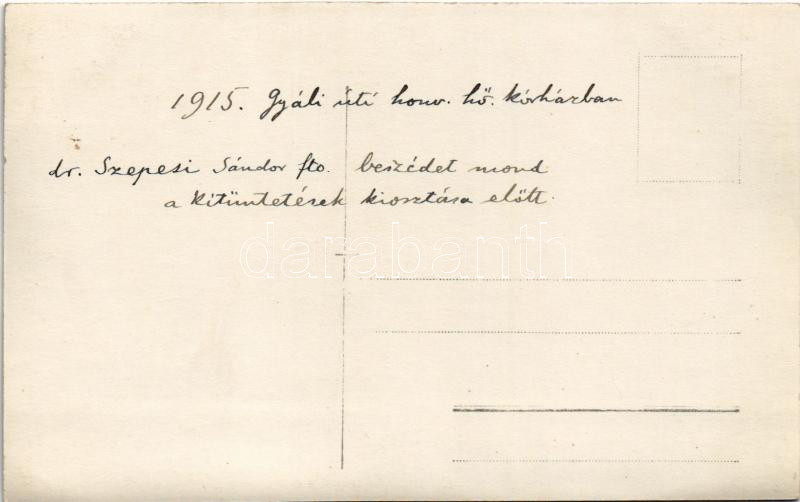 1915. Gyáli úti honv. hő. kórházban
dr. Szepesi Sándor fto. beszédet mond
a kitüntetések kiosztása előtt.
darabanth